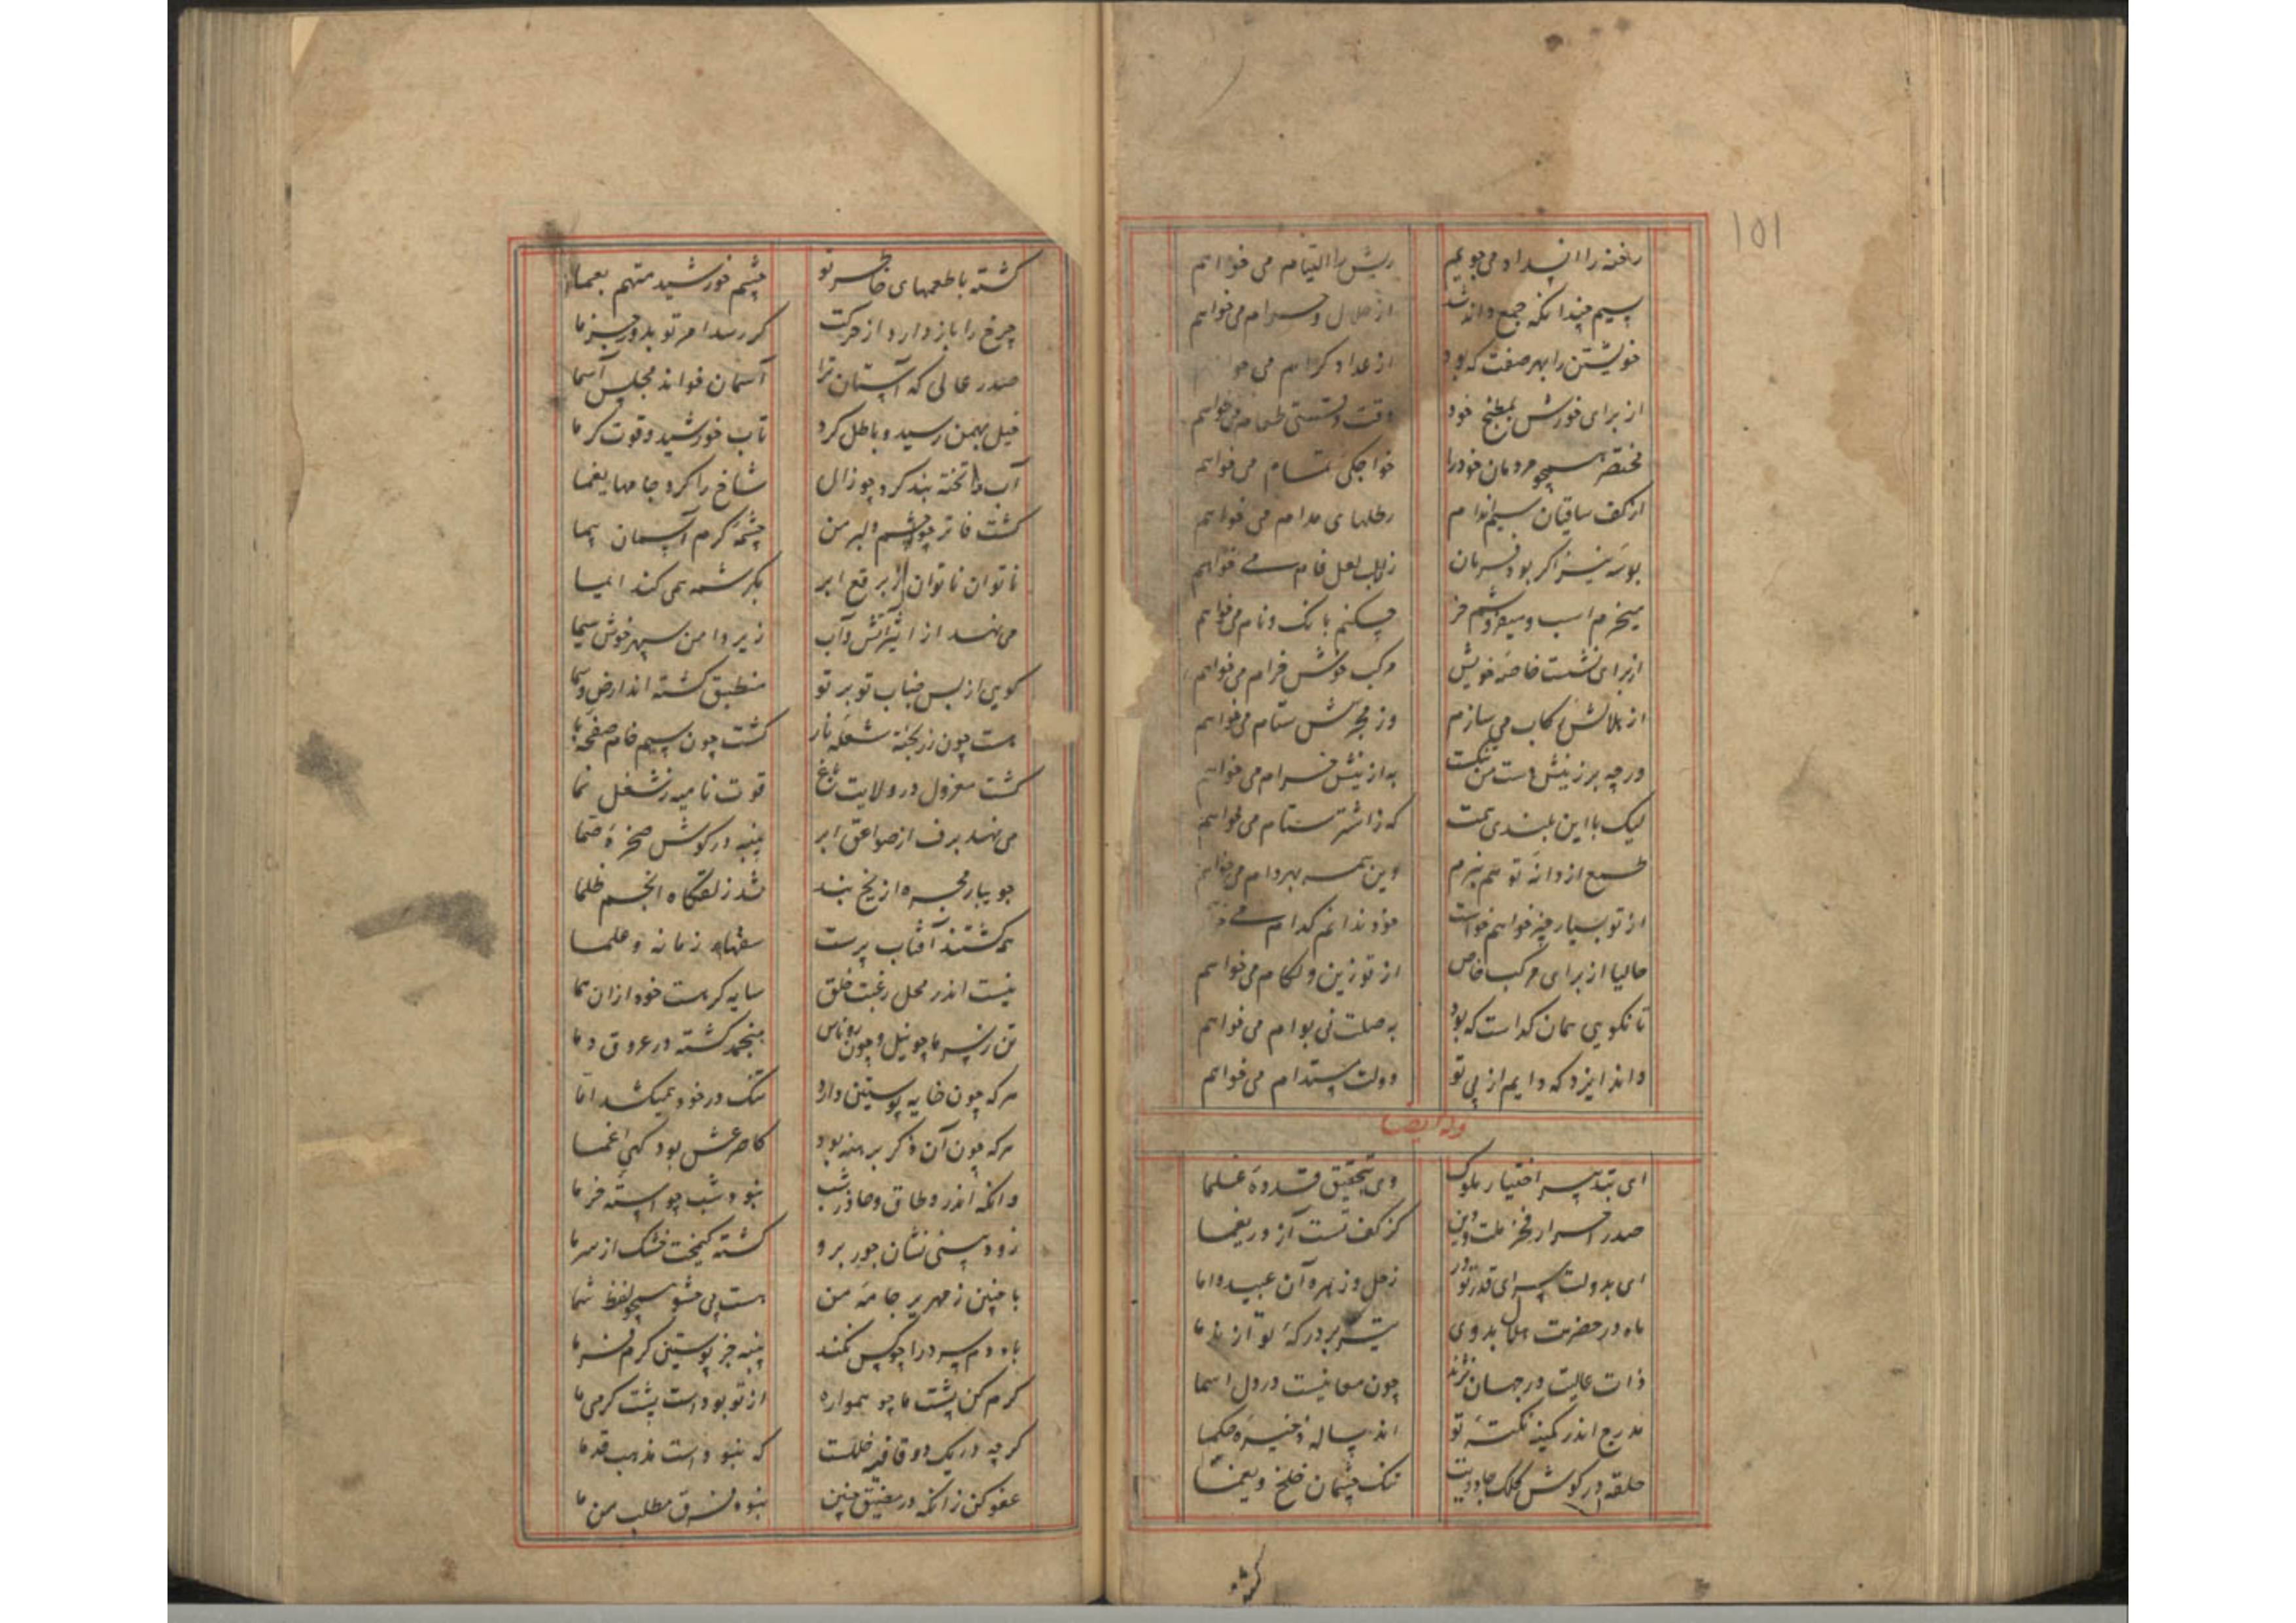 ۱۵۱
رخنه را انسداد می جویم ریش را التیام می خواهم
سیم چندانکه جمع داند شد از حلال و حرام می خواهم
خویشتن را بهر صفت که بود از عداد کرام می خواهم
از برای خورش بمطبخ خود وقت و شستی طعام می خواهم
مختصر همچو مردمان خود را خواجگی تمام می خواهم
از کف ساقیان سیم اندام رطلهای مدام می خواهم
بوسه نیز اگر بود فرمان زان لب لعل فام می خواهم
میخرم اسب و میفروشم خر چکنم بانک و نام می خواهم
از برای نشست خاصه خویش مرکب خوش خرام می خواهم
از هلالش رکاب می سازم وز مجرش ستام می خواهم
ورچه برزینش دست من نکست به ازینش فسرام می خواهم
لیک با این بلندی همت که ز اشتر ستام می خواهم
طمع از دانه تو هم نبرم وین همه بهر دام می خواهم
از تو بسیار چیز خواهم خواست خود ندانم کدام می خواهم
حالیا از برای مرکب خاص از تو زین و لکام می خواهم
تا نکویی همان کداست که بود به صلت نی بوام می خواهم
داند ایزد که دایم از پی تو دولت مستدام می خواهم
وله ایضا
ای بتدبیر اختیار ملوک وی بتحقیق قدوه علما
صدر احرار فخر ملت و دین کز کف تست آز در یغما
ای بدولت سرای قدر تو در زحل و زهره آن عبید و اما
ماه در حضرت هلال بدوی تیر بر درکه تو از ندما
ذات عالیت در جهان نژند چون معانیست در دل اسما
مدرج اندر کمینه نکته تو اند ساله ذخیره حکما
حلقه در کوش کلک جادویت تنک چشمان خلخ و یغما
کشته
کشته با طعمهای خاطر تو چشم خورشید متهم بعما
چرخ را باز دارد از حرکت کر رسد امر تو بدو جزما
صدر عالی که آستان ترا آسمان خواند مجلس اسما
خیل بهمن رسید و باطل کرد تاب خورشید و قوت کرما
آب را تخته بند کرد چو زال شاخ را کرد جامها یغما
کشت فاتر چو چشم دلبر من چشمه کرم آسمان پیما
ناتوان ناتوان ز برقع ابر بکرشمه همی کند ایما
می نهد از اثیر آتش و آب زیر دامن سپهر خوش سیما
کویی از بس ضباب تو بر تو منطبق کشته اند ارض و سما
هست چون زر پخته شعله نار کشت چون سیم خام صفحه ما
کشت معزول در ولایت باغ قوت نامیه ز شغل نما
می نهد برف از صواعق ابر پنبه در کوش صخره صما
جویبار مجره از یخ بند شد زلقکاه انجم ظلما
همه کشتند آفتاب پرست سفهای زمانه و علما
نیست اندر محل رغبت خلق سایه کر هست خود ازان هما
تن ز سرما چو نیل و چون روناس منجمد کشته در عروق دما
هرکه چون خایه پوستین دارد تنک در خود همیکشد اما
هرکه چون آن ذکر برهنه بود کاه رعش بود کهی اغما
وانکه اندر وطاق وحاذر شب نبود شب چو استه خرما
زود بینی نشان جور برو کشته کیمخت خشک از سرما
با چنین زمهریر جامه من هست بی حشو همچو لفظ شما
باد دم سرد را چو پس نکند پنبه جز پوستین کرم فرما
کرم کن پشت ما چو همواره از تو بوده است پشت کرمی ما
کرچه در یک دو قافیه خللست که نبوده است مذهب قدما
عفو کن زانکه در مضیق چنین نبود فرق مطلب من ما